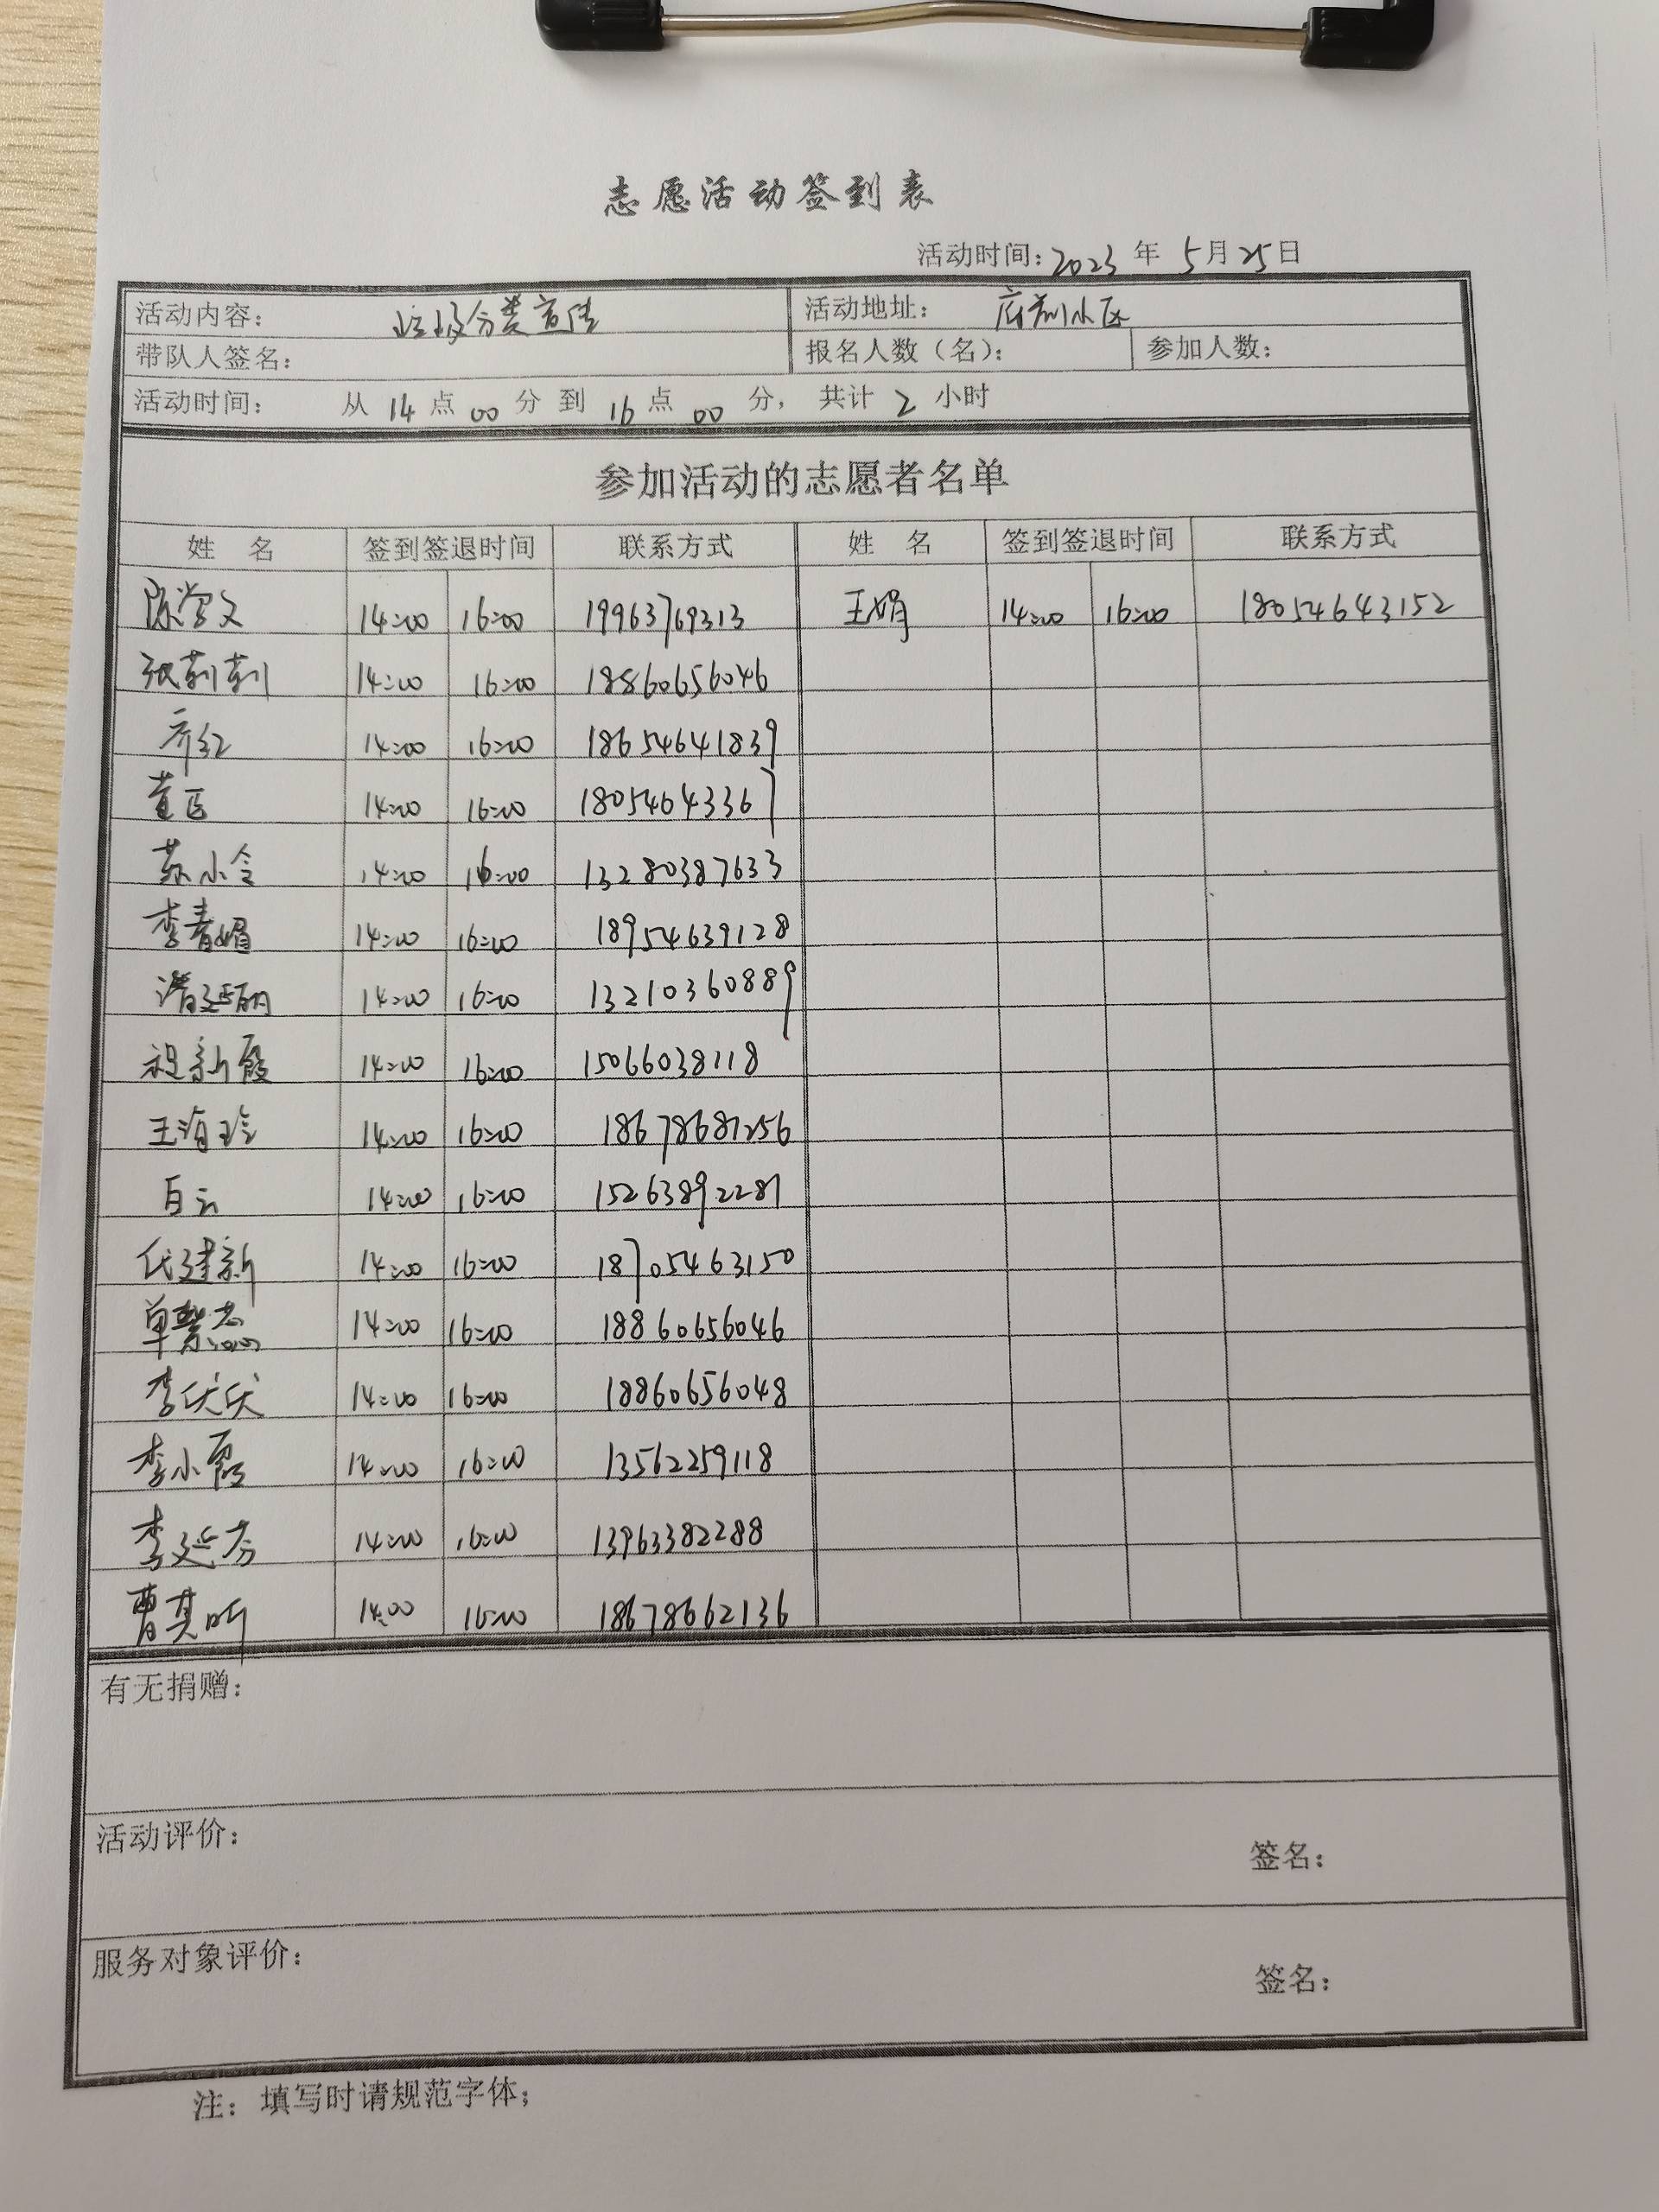 志愿活动签到表
活动时间：2023 年 5月25日
活动内容： 垃圾分类宣传 活动地址： 府前小区
带队人签名： 报名人数（名）： 参加人数：
活动时间： 从 14 点 00 分到 16 点 00 分， 共计 2 小时
参加活动的志愿者名单
姓 名 签到签退时间 联系方式 姓 名 签到签退时间 联系方式
陈学文 14:00 16:00 19963769313 王娟 14:00 16:00 18054643152
张莉莉 14:00 16:00 18860656046
齐红 14:00 16:00 18654641839
14:00 16:00 18054643367
苏小令 14:00 16:00 13280387633
李青媚 14:00 16:00 18954639128
14:00 16:00 13210360889
祝新霞 14:00 16:00 15066038118
王海玲 14:00 16:00 18678687256
白云 14:00 16:00 15263892287
代建新 14:00 16:00 18705463150
14:00 16:00 18860656046
14:00 16:00 18860656048
李小霞 14:00 16:00 13562259118
李延芬 14:00 16:00 13963382288
曹其昕 14:00 16:00 18678662136
有无捐赠：
活动评价：
签名：
服务对象评价：
签名：
注：填写时请规范字体；